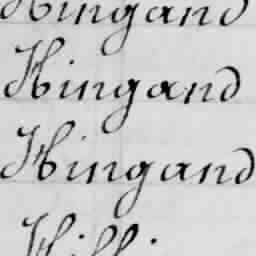 Hingand
Hingand
Hingand